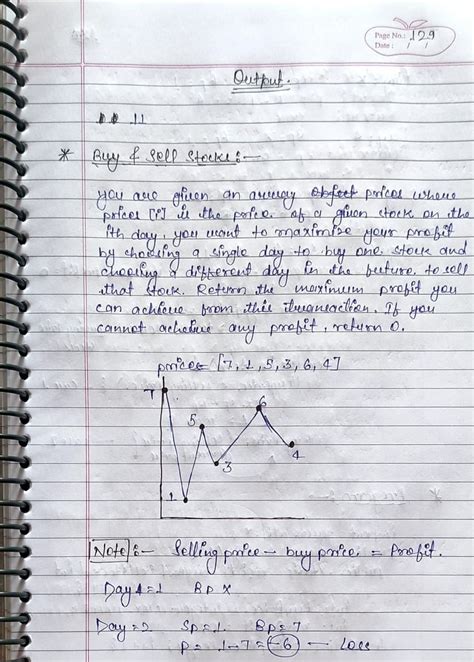 Page No.: 129
Date: / /
Output.
11
* Buy & Sell Stocks :-
You are given an array prices where
prices [i] is the price of a given stock on the
ith day, you want to maximize your profit
by choosing a single day to buy one stock and
choosing a different day in the future to sell
that stock. Return the maximum profit you
can achieve from this transaction. If you
cannot acheive any profit, return 0.
prices = [7, 1, 5, 3, 6, 4]
7
5
6
3
4
1
Note :- Selling price - buy price = Profit.
Day 1 = 1 Bp x
Day = 2 Sp = 1. Bp = 7
P = 1-7 = -6 — Loss